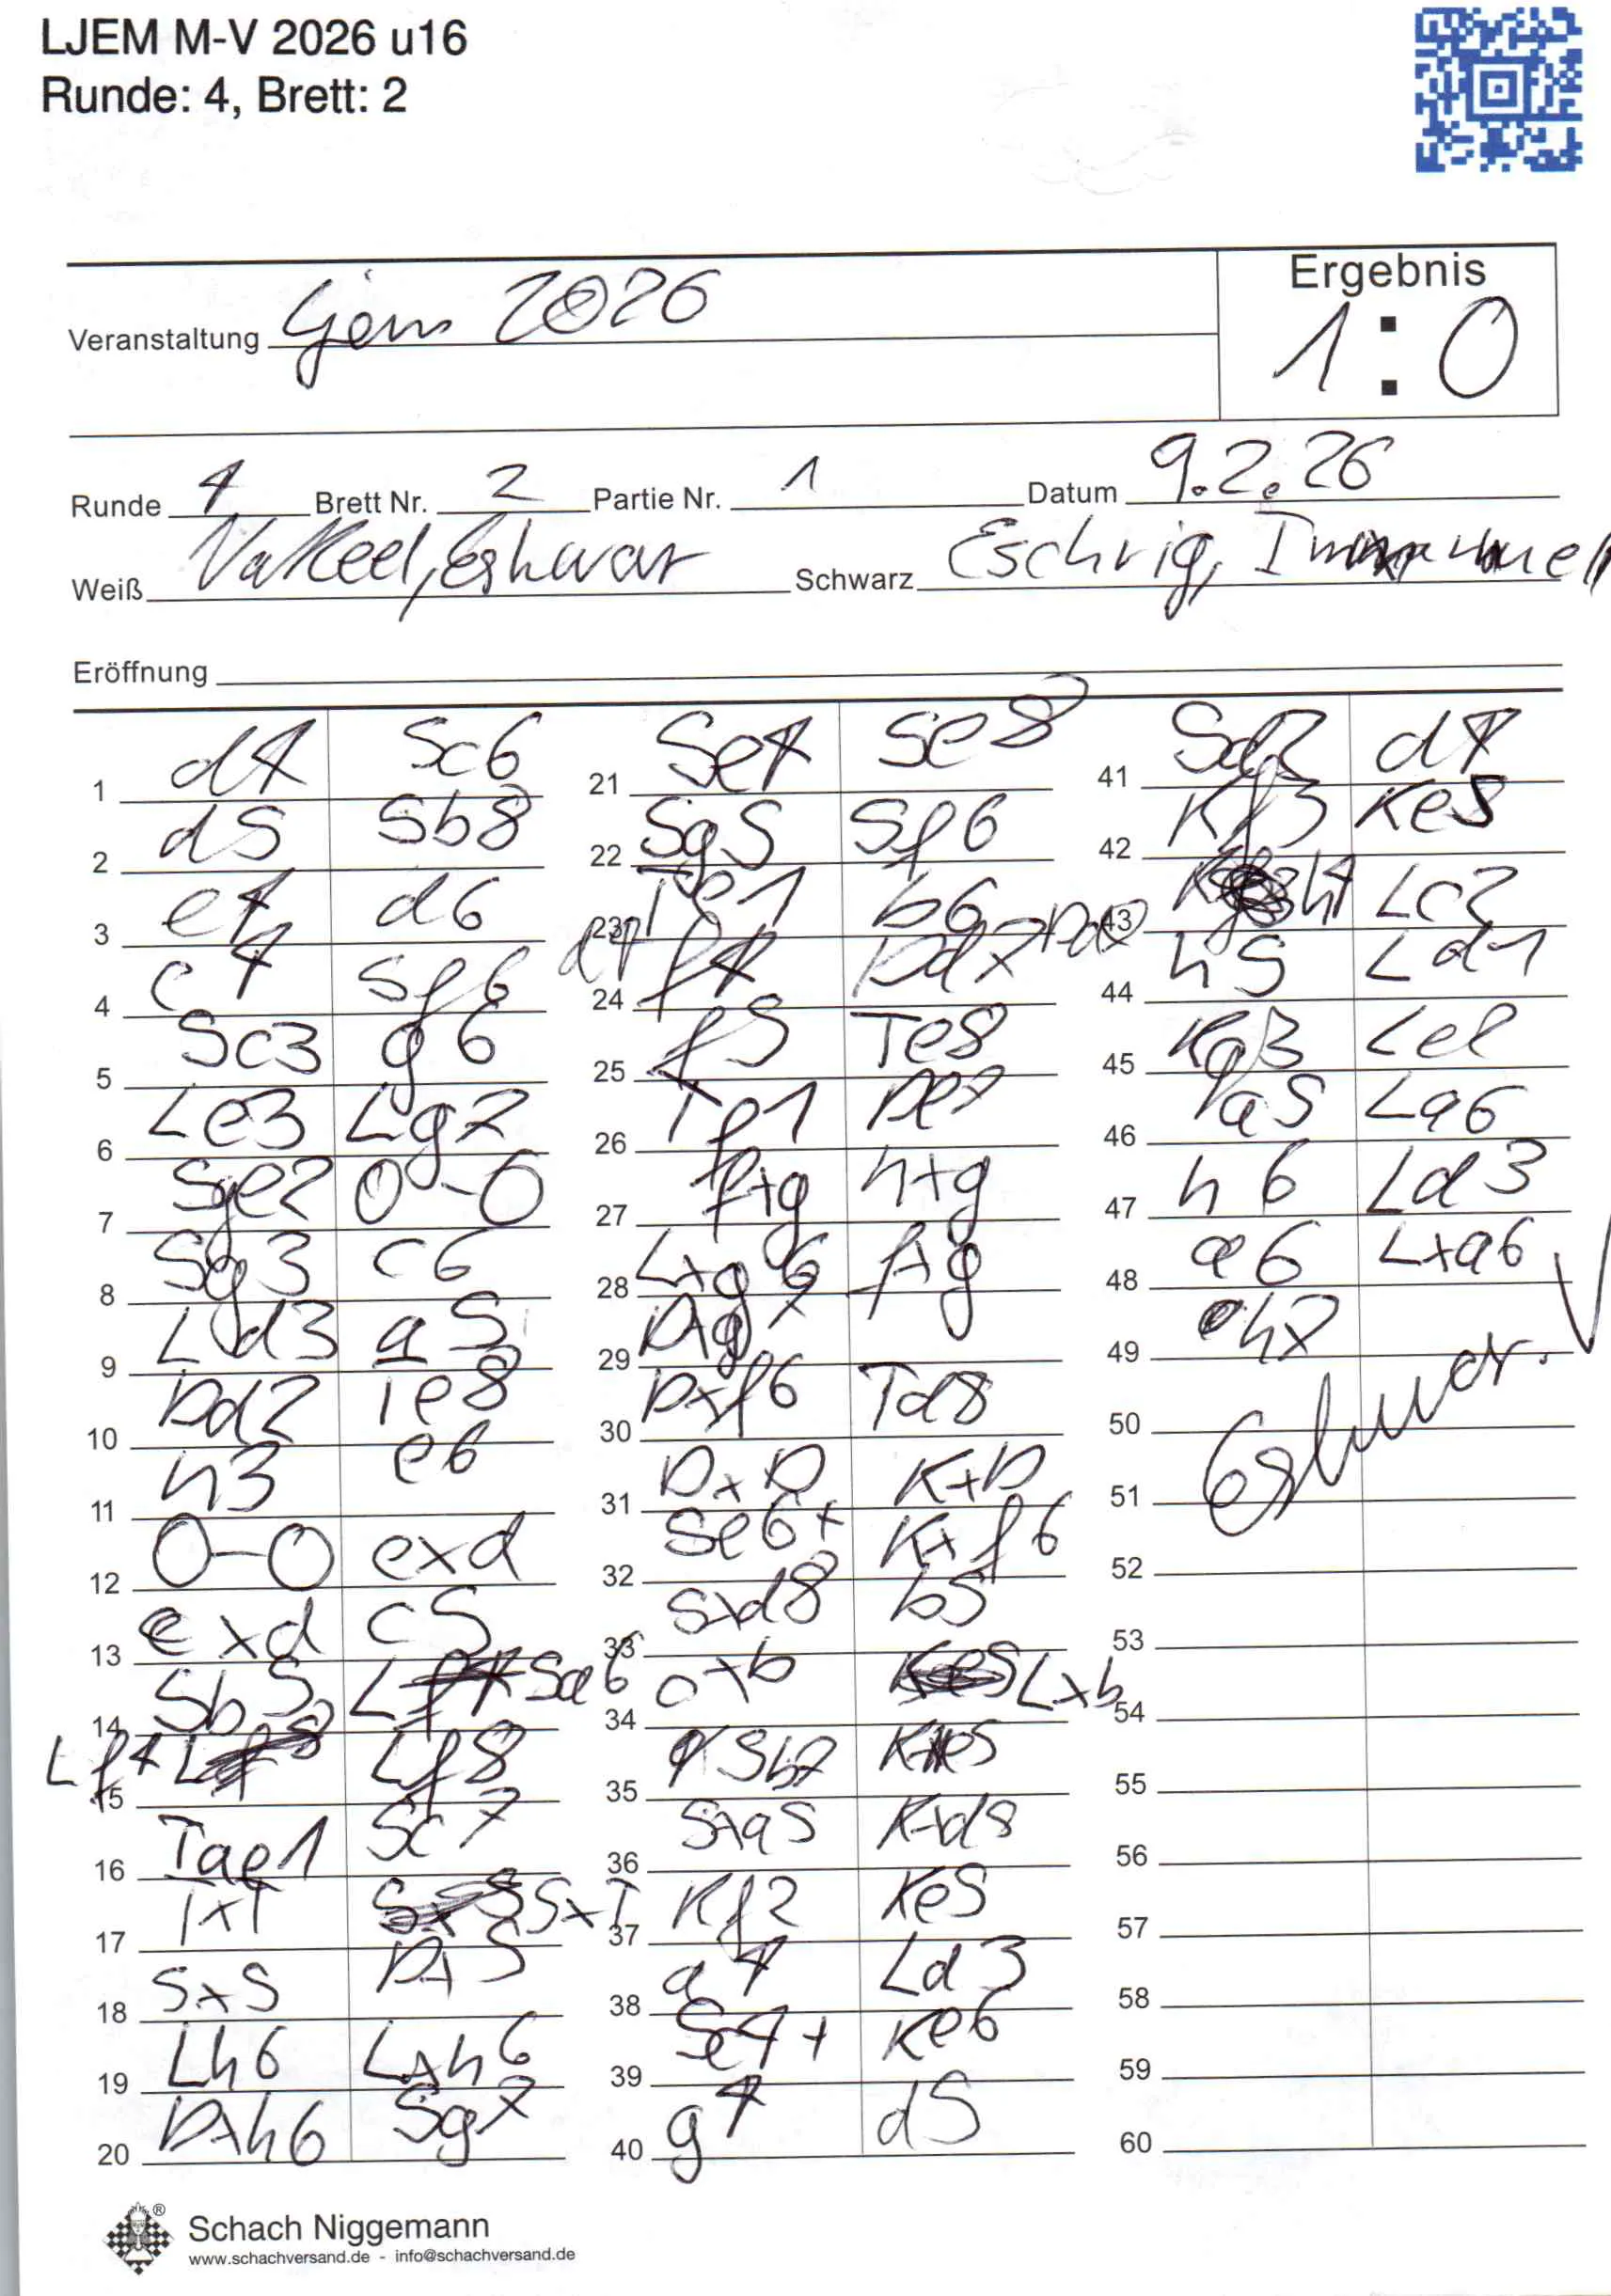 LJEM M-V 2026 u16
Runde: 4, Brett: 2
Veranstaltung Ljem 2026
Ergebnis
1:0
Runde 4 Brett Nr. 2 Partie Nr. 1 Datum 9.2.26
Weiß Vakeel, Eshwar Schwarz Eschrig, Immanuel
Eröffnung
1 d4 Sc6
2 d5 Sb8
3 e4 d6
4 c4 Sf6
5 Sc3 g6
6 Le3 Lg7
7 Sge2 0-0
8 Sg3 c6
9 Ld3 a5
10 Dd2 Te8
11 h3 e6
12 0-0 exd
13 exd c5
14 Sb5 Sa6
15 Lf4 Lf8
16 Tae1 Sc7
17 TxT SxT
18 SxS DxS
19 Lh6 Lxh6
20 Dxh6 Sg7
21 Se4 Se8
22 Sg5 Sf6
23 Te1 b6
24 f4 Dd7
25 f5 Te8
26 Tf1 De7
27 fxg hxg
28 Lxg6 fxg
29 Dxg
30 Dxf6 Td8
31 DxD KxD
32 Se6+ Kf6
33 Sxd8 b5
34 cxb Lxb
35 Sb7 Ke5
36 Sxa5 Kxd5
37 Kf2 Ke5
38 a4 Ld3
39 Sc4+ Ke6
40 g4 d5
41 Sd2 d4
42 Kf3 Ke5
43 h4 Lc2
44 h5 Ld1
45 Kg3 Le2
46 a5 La6
47 h6 Ld3
48 a6 Lxa6
49 h7
50
51
52
53
54
55
56
57
58
59
60
Eshwar.
Schach Niggemann
www.schachversand.de - info@schachversand.de